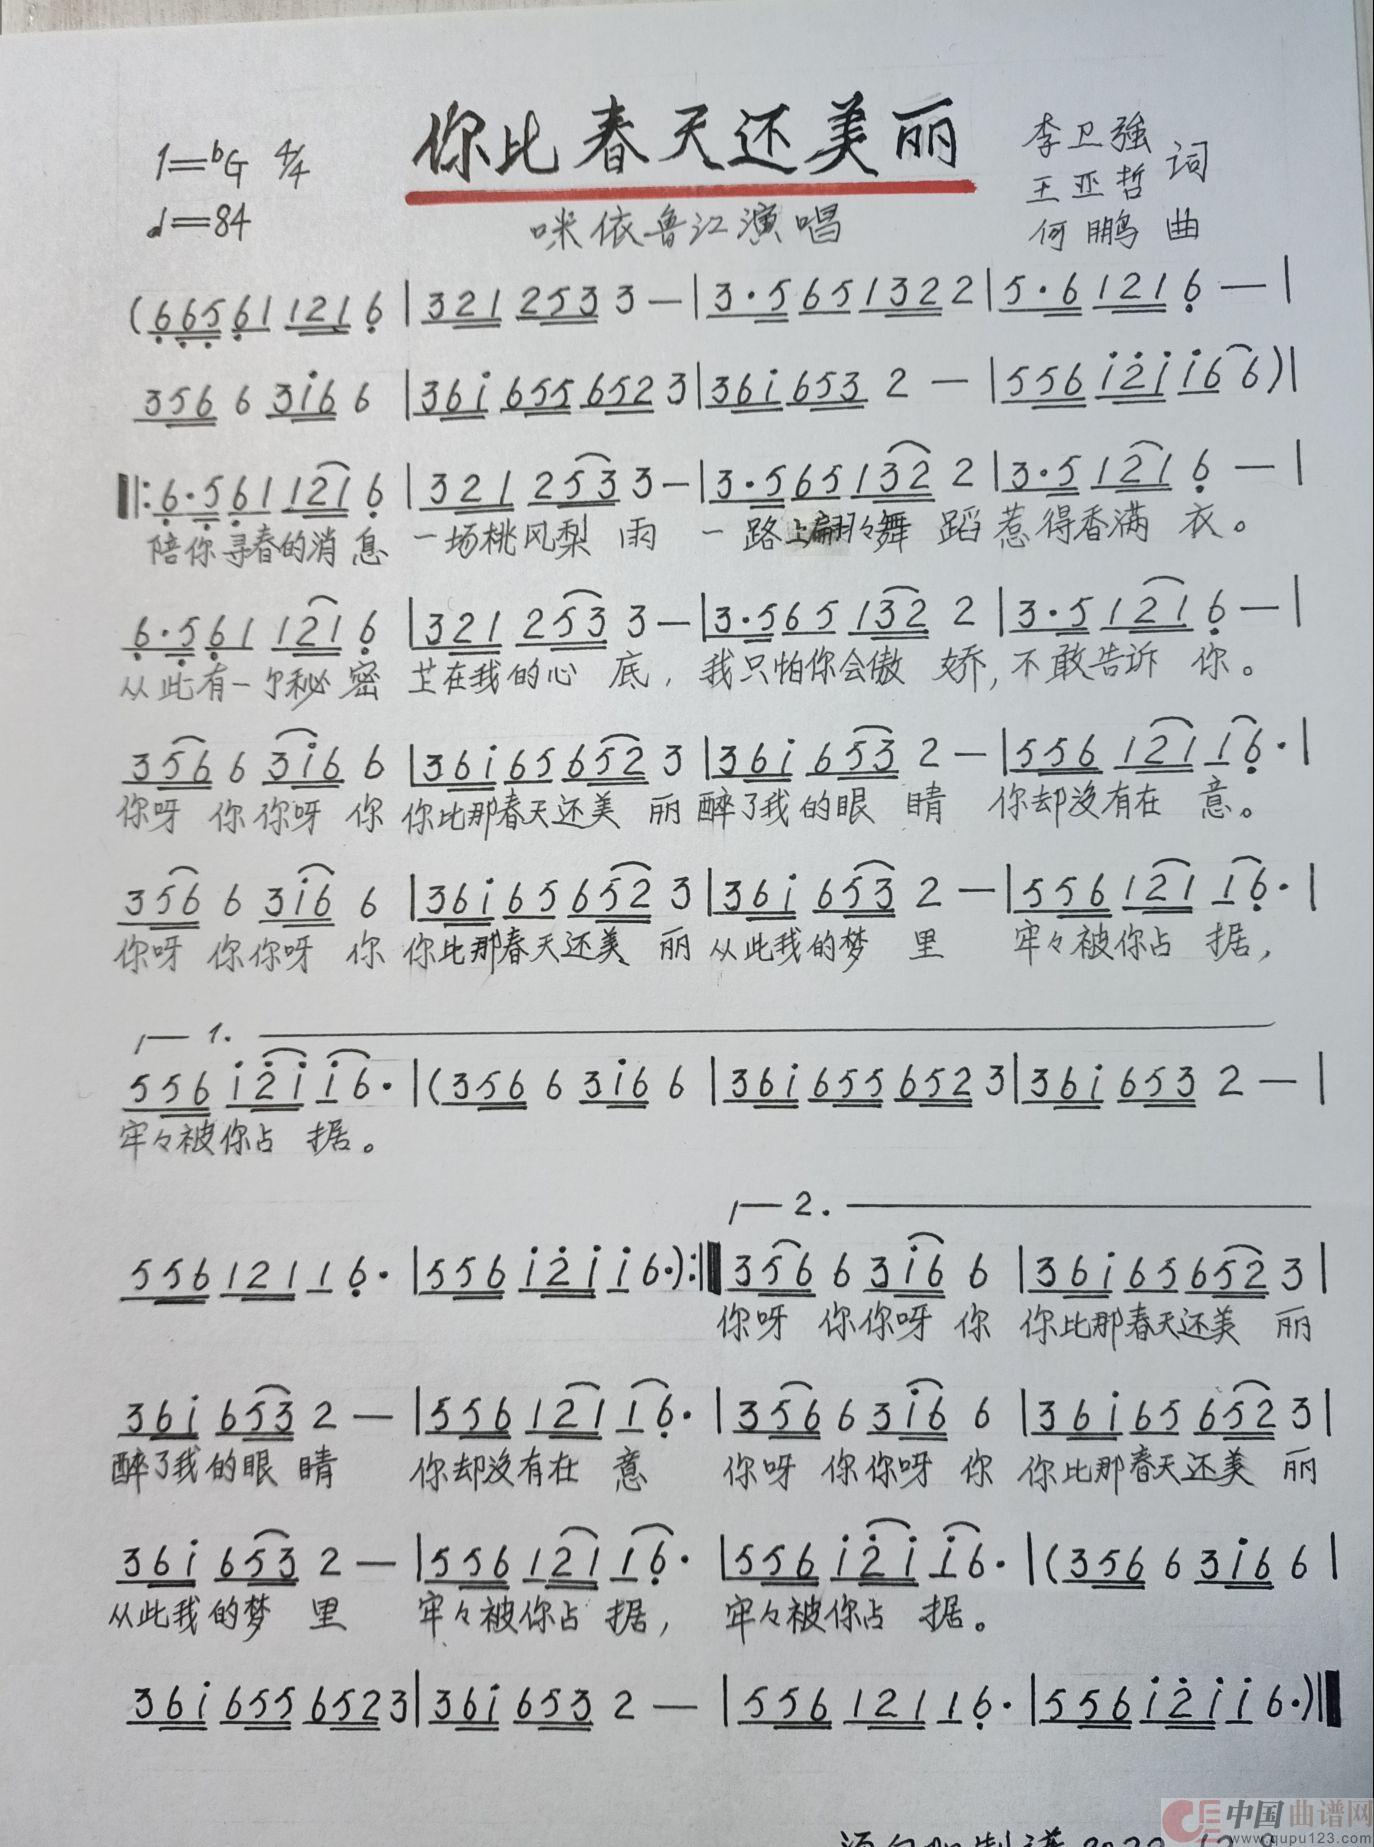 你比春天还美丽
1=bG 4/4
♩=84
咪依鲁江演唱
李卫强
王亚哲 词
何鹏 曲
(6 6 5 6 1 1 2 1 6 | 3 2 1 2 5 3 3 — | 3 · 5 6 5 1 3 2 2 | 5 · 6 1 2 1 6 — |
3 5 6 6 3 i 6 6 | 3 6 i 6 5 5 6 5 2 3 | 3 6 i 6 5 3 2 — | 5 5 6 i 2 i i 6 6 ) |
‖: 6 · 5 6 1 1 2 1 6 | 3 2 1 2 5 3 3 — | 3 · 5 6 5 1 3 2 2 | 3 · 5 1 2 1 6 — |
陪你寻春的消息 一场桃风梨雨 一路上翩翩々舞蹈惹得香满衣。
6 · 5 6 1 1 2 1 6 | 3 2 1 2 5 3 3 — | 3 · 5 6 5 1 3 2 2 | 3 · 5 1 2 1 6 — |
从此有一个秘密 芷在我的心底, 我只怕你会傲娇, 不敢告诉你。
3 5 6 6 3 i 6 6 | 3 6 i 6 5 6 5 2 3 | 3 6 i 6 5 3 2 — | 5 5 6 1 2 1 1 6 · |
你呀 你你呀 你 你比那春天还美 丽 醉了我的眼 睛 你却没有在 意。
3 5 6 6 3 i 6 6 | 3 6 i 6 5 6 5 2 3 | 3 6 i 6 5 3 2 — | 5 5 6 1 2 1 1 6 · |
你呀 你你呀 你 你比那春天还美 丽 从此我的梦 里 牢々被你占 据,
1.
5 5 6 i 2 i i 6 · | (3 5 6 6 3 i 6 6 | 3 6 i 6 5 5 6 5 2 3 | 3 6 i 6 5 3 2 — |
牢々被你占 据。
2.
5 5 6 1 2 1 1 6 · | 5 5 6 i 2 i i 6 · ) :‖ 3 5 6 6 3 i 6 6 | 3 6 i 6 5 6 5 2 3 |
你呀 你你呀 你 你比那春天还美 丽
3 6 i 6 5 3 2 — | 5 5 6 1 2 1 1 6 · | 3 5 6 6 3 i 6 6 | 3 6 i 6 5 6 5 2 3 |
醉了我的眼 睛 你却没有在 意 你呀 你你呀 你 你比那春天还美 丽
3 6 i 6 5 3 2 — | 5 5 6 1 2 1 1 6 · | 5 5 6 i 2 i i 6 · | (3 5 6 6 3 i 6 6 |
从此我的梦 里 牢々被你占 据, 牢々被你占 据。
3 6 i 6 5 5 6 5 2 3 | 3 6 i 6 5 3 2 — | 5 5 6 1 2 1 1 6 · | 5 5 6 i 2 i i 6 · ) ‖
中国曲谱网
www.qupu123.com